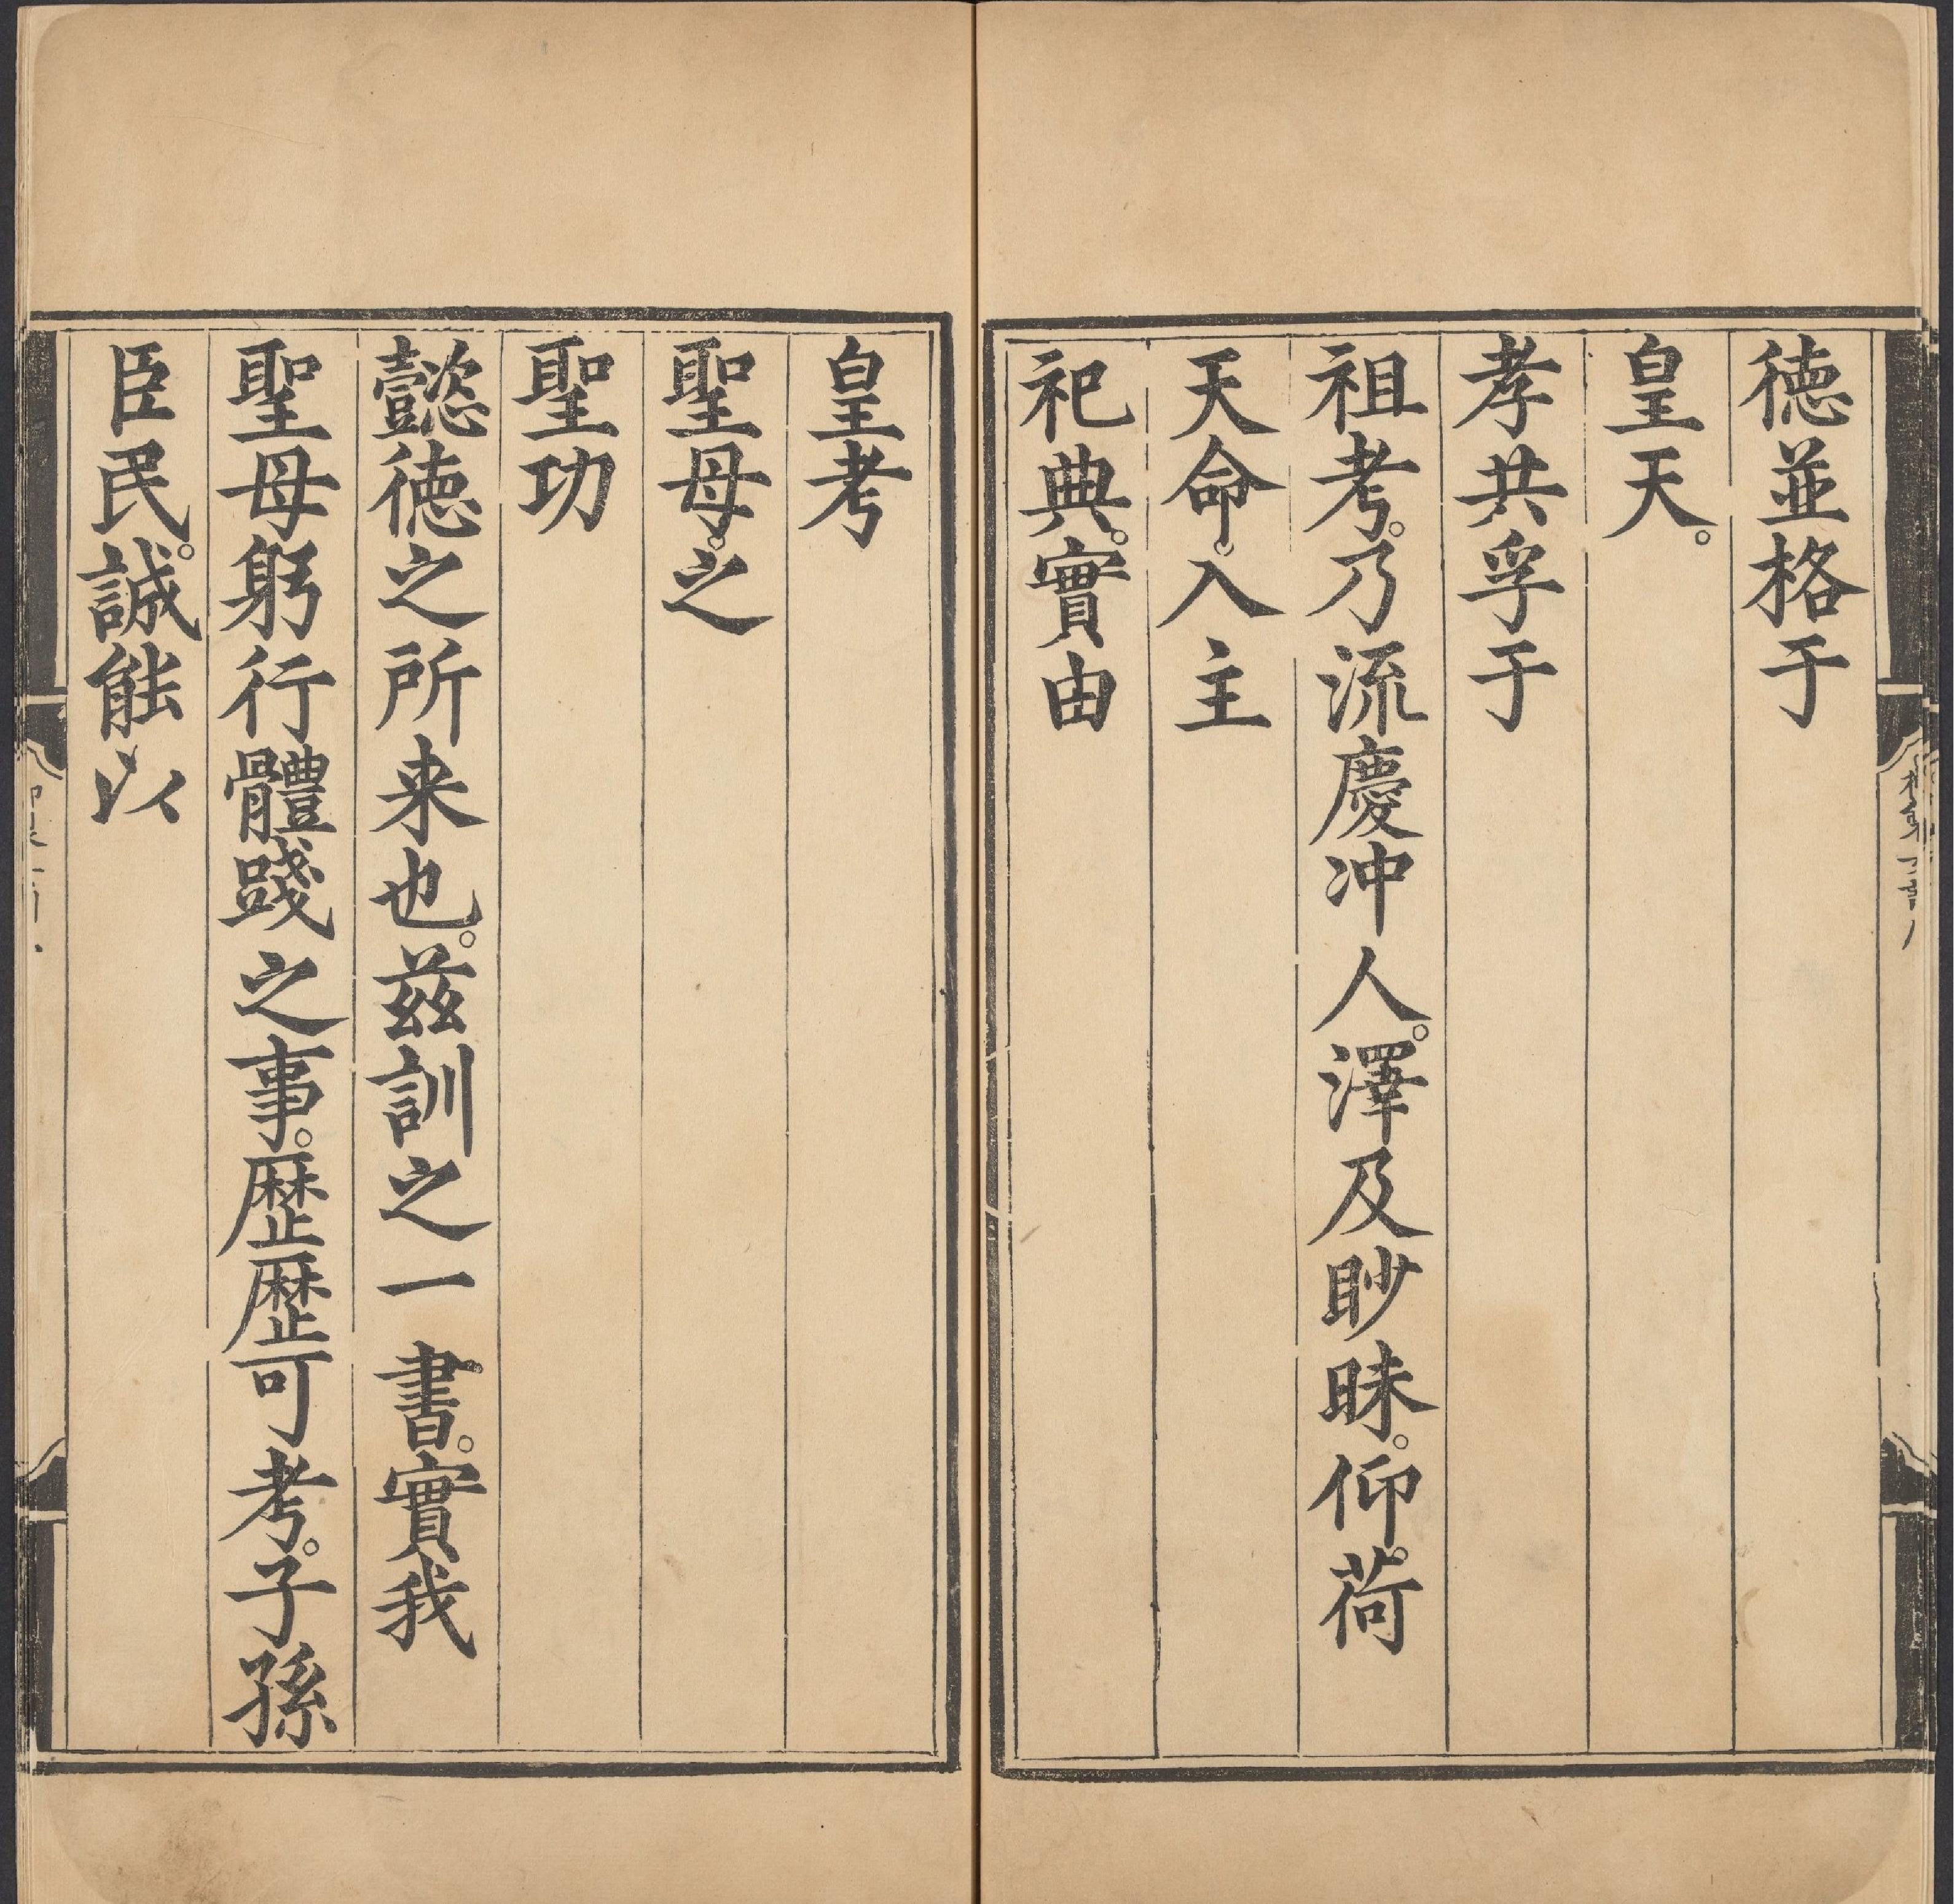 徳並格于
皇天。
孝共孚于
祖考。乃流慶冲人。澤及眇昧。仰。荷
天命。入主
祀典。實由
皇考
聖母。之
聖功
懿徳之所来也。兹訓之一書。實我
聖母躬行體踐之事。歴歴可考。子孫
臣民。誠能以